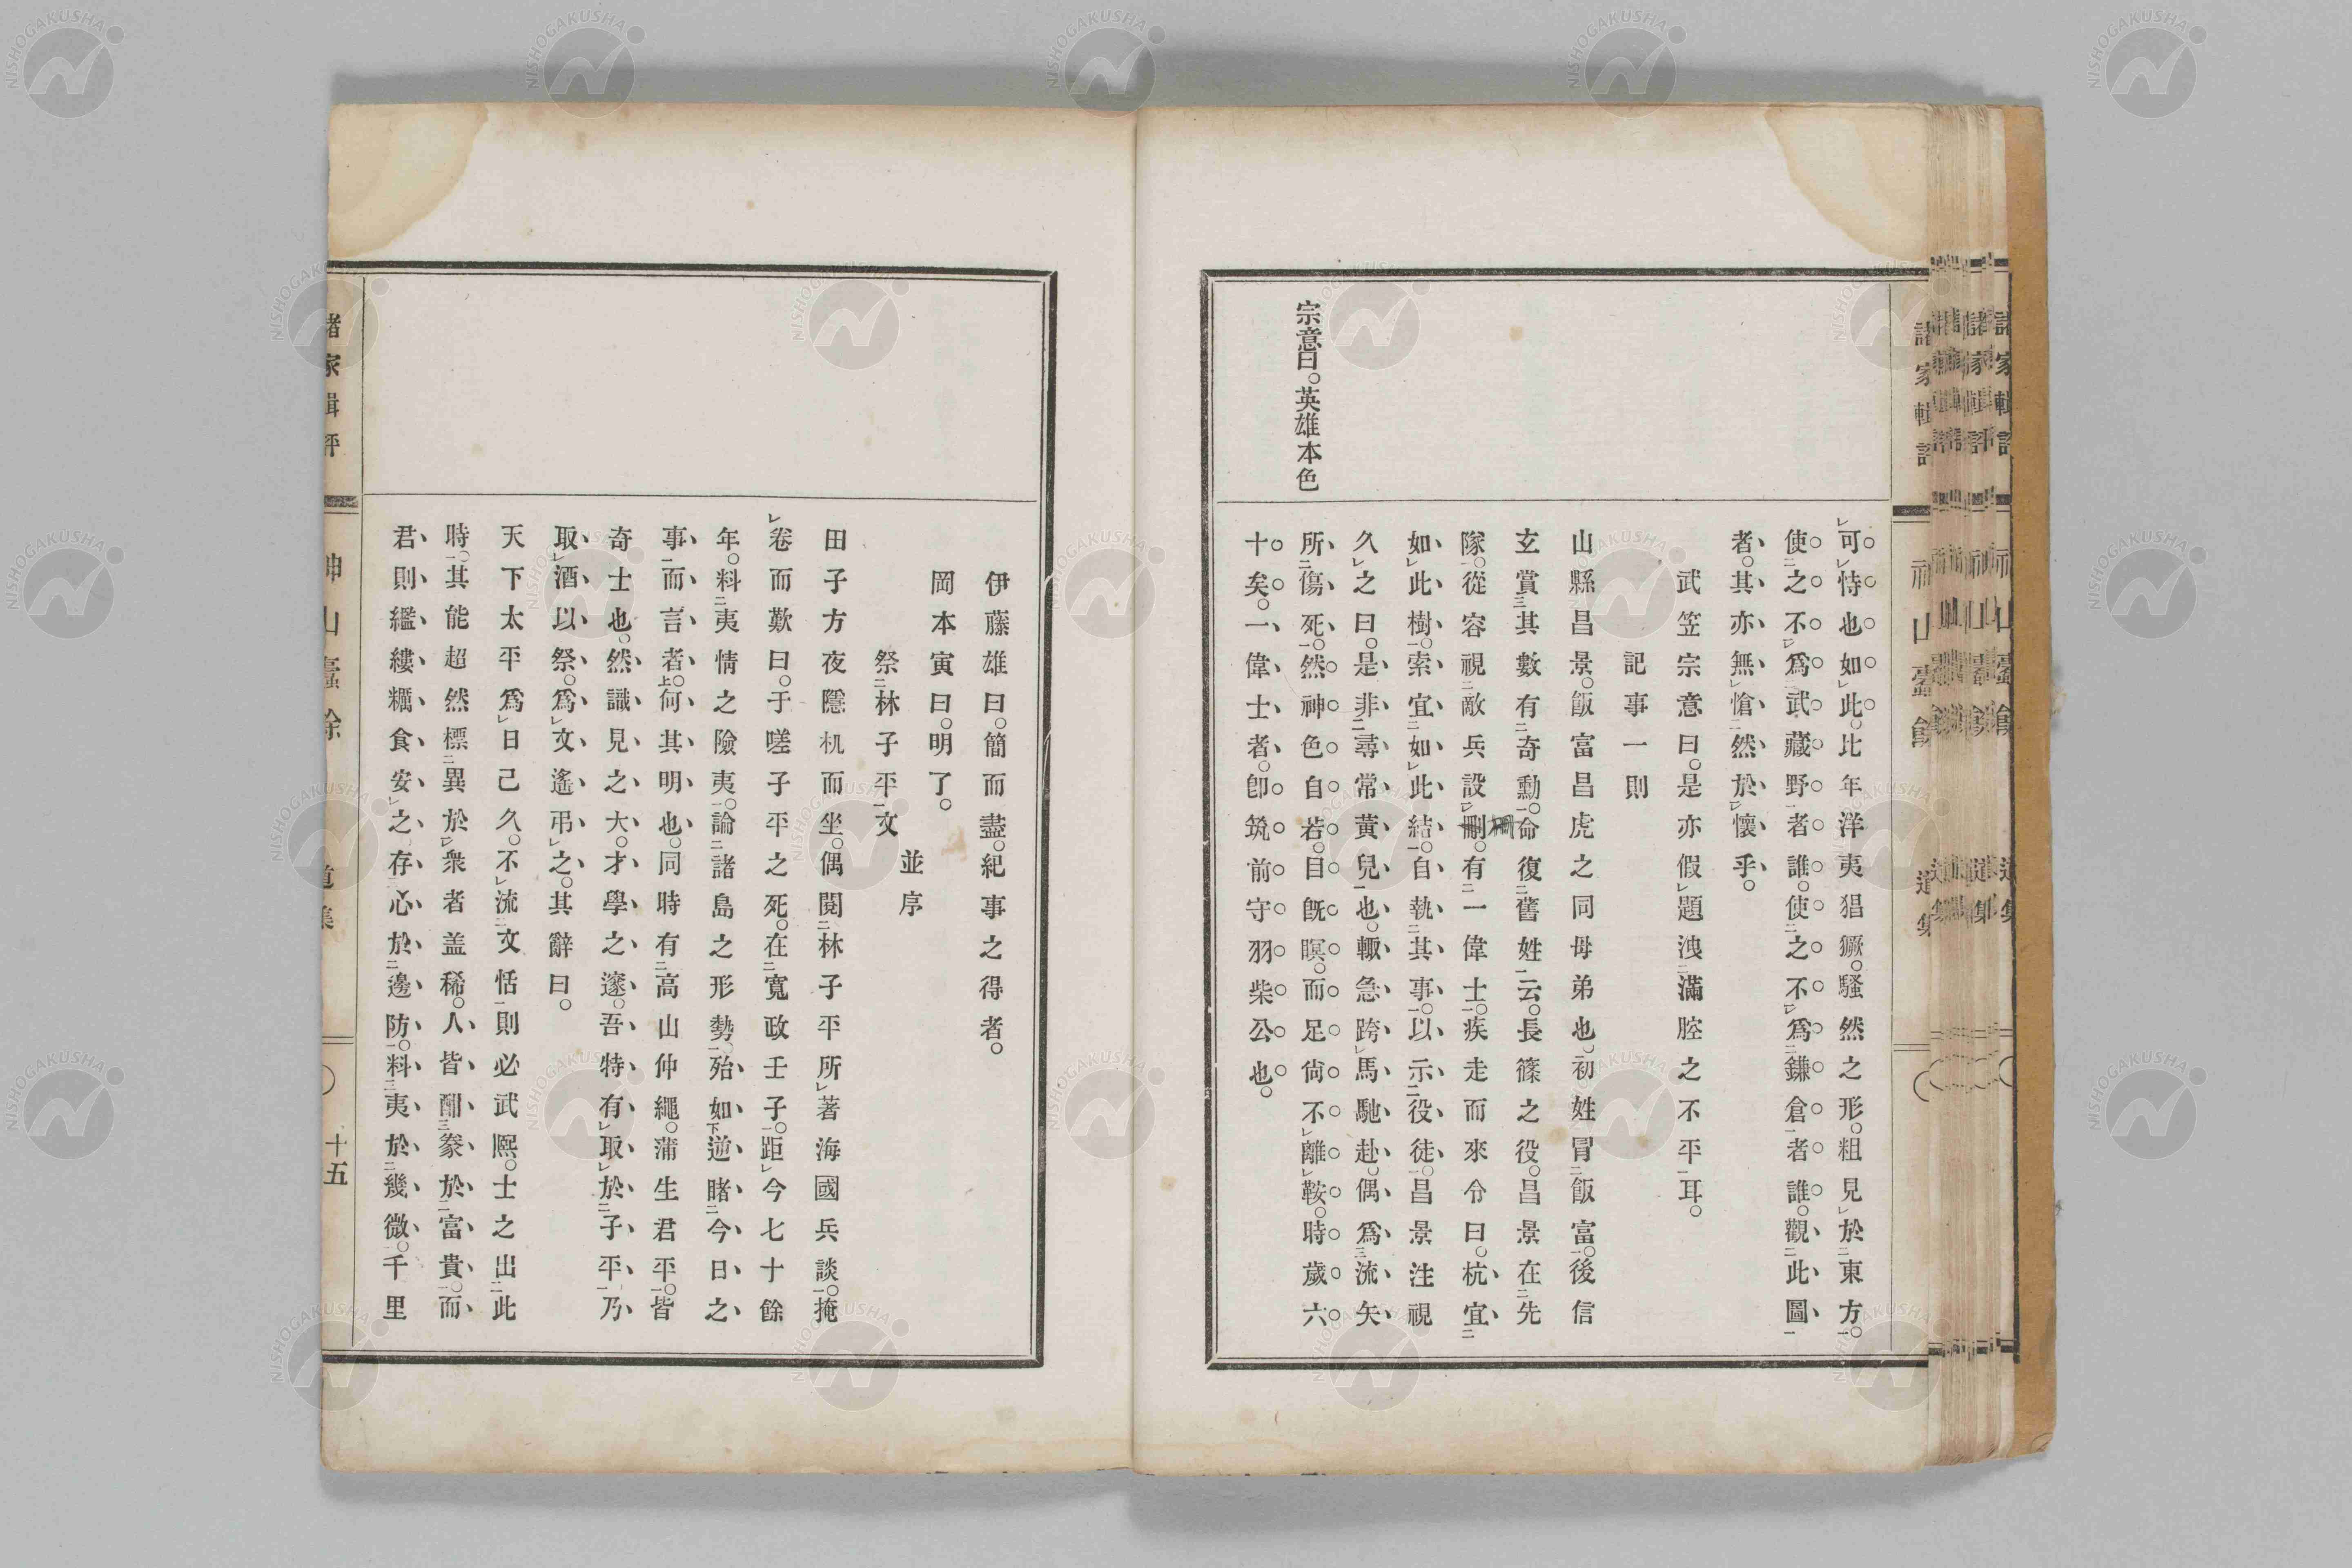 可恃也如此。比年洋夷猖獗。騷然之形。粗見於東方。
使之不爲武藏野者誰。使之不爲鎌倉者誰。觀此圖
者。其亦無愴然於懷乎。
武笠宗意曰。是亦假題洩滿腔之不平耳。
記事一則
山縣昌景。飯富昌虎之同母弟也。初姓冒飯富。後信
玄賞其數有奇勳。命復舊姓云。長篠之役。昌景在先
隊。從容視敵兵設刪。有一偉士。疾走而來令曰。杭宜
柵
如此樹。索宜如此結。自執其事。以示役徒。昌景注視
久之曰。是非尋常黃兒也。輙急跨馬馳赴。偶爲流矢
所傷死。然神色自若。目既瞑。而足尙不離鞍。時歲六
十矣。一偉士者。卽筑前守羽柴公也。
宗意曰。英雄本色
伊藤雄曰。簡而盡。紀事之得者。
岡本寅曰。明了。
祭林子平文 並序
田子方夜隱机而坐。偶閱林子平所著海國兵談。掩
卷而歎曰。于嗟子平之死。在寬政壬子。距今七十餘
年。料夷情之險夷。論諸島之形勢。殆如逆睹今日之
事而言者。何其明也。同時有高山仲繩。蒲生君平。皆
奇士也。然識見之大。才學之邃。吾特有取於子平。乃
取酒以祭。爲文遙弔之。其辭曰。
天下太平爲日已久。不流文恬則必武熈。士之出此
時。其能超然標異於衆者盖稀。人皆酣豢於富貴。而
君則繿縷糲食安之。存心於邊防。料夷於幾微。千里
十五